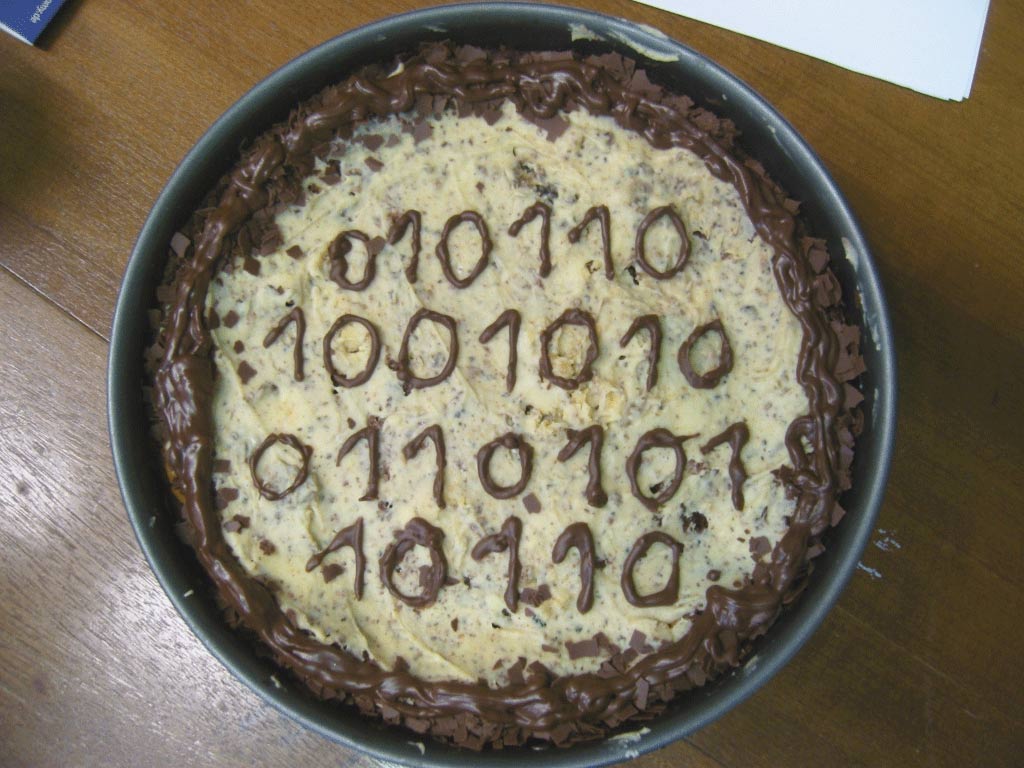 010110
1001010
0110101
10110